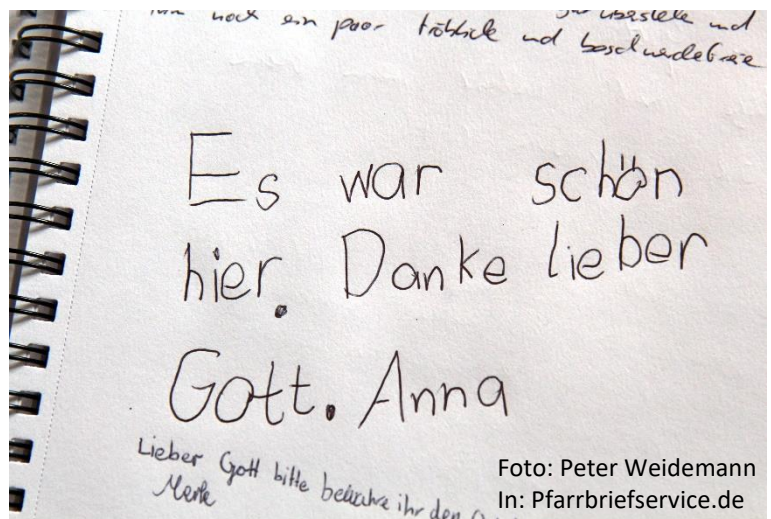 noch ein paar fröhliche und beschwerdefreie
Es war schön
hier. Danke lieber
Gott. Anna
Lieber Gott bitte bewahre ihr den
Merle
Foto: Peter Weidemann
In: Pfarrbriefservice.de